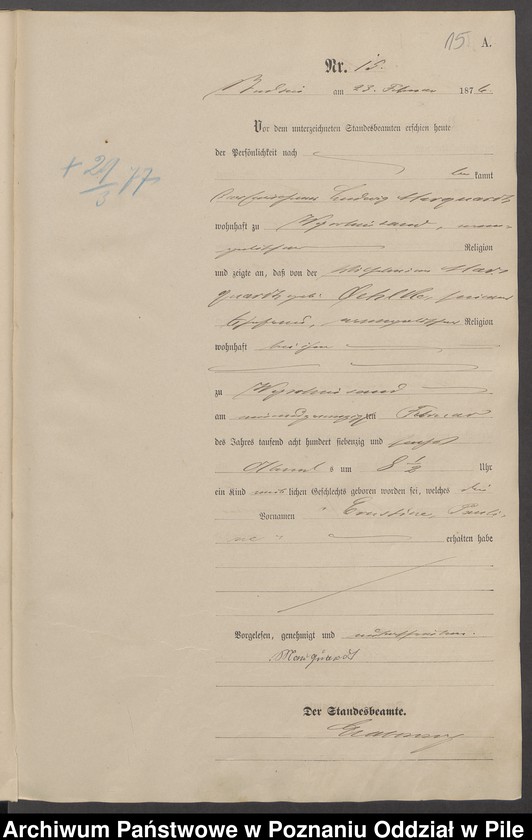 15 A.
Nr. 15.
am 23. Februar 1876.
Vor dem unterzeichneten Standesbeamten erschien heute
der Persönlichkeit nach
be kannt
Ludwig Marquardt
wohnhaft zu
Religion
und zeigte an, daß von der Wilhelmine Mar-
quardt geb. Oehlke, seiner
Ehefrau, evangelischer Religion
wohnhaft bei ihm
zu
am ten Februar
des Jahres tausend acht hundert siebenzig und sechs
Abends um 8 1/2 Uhr
ein Kind weiblichen Geschlechts geboren worden sei, welches die
Vornamen Ernstine, Pauli-
ne erhalten habe
Vorgelesen, genehmigt und unterschrieben.
Marquardt
Der Standesbeamte.
+ 29/3 77
Archiwum Państwowe w Poznaniu Oddział w Pile